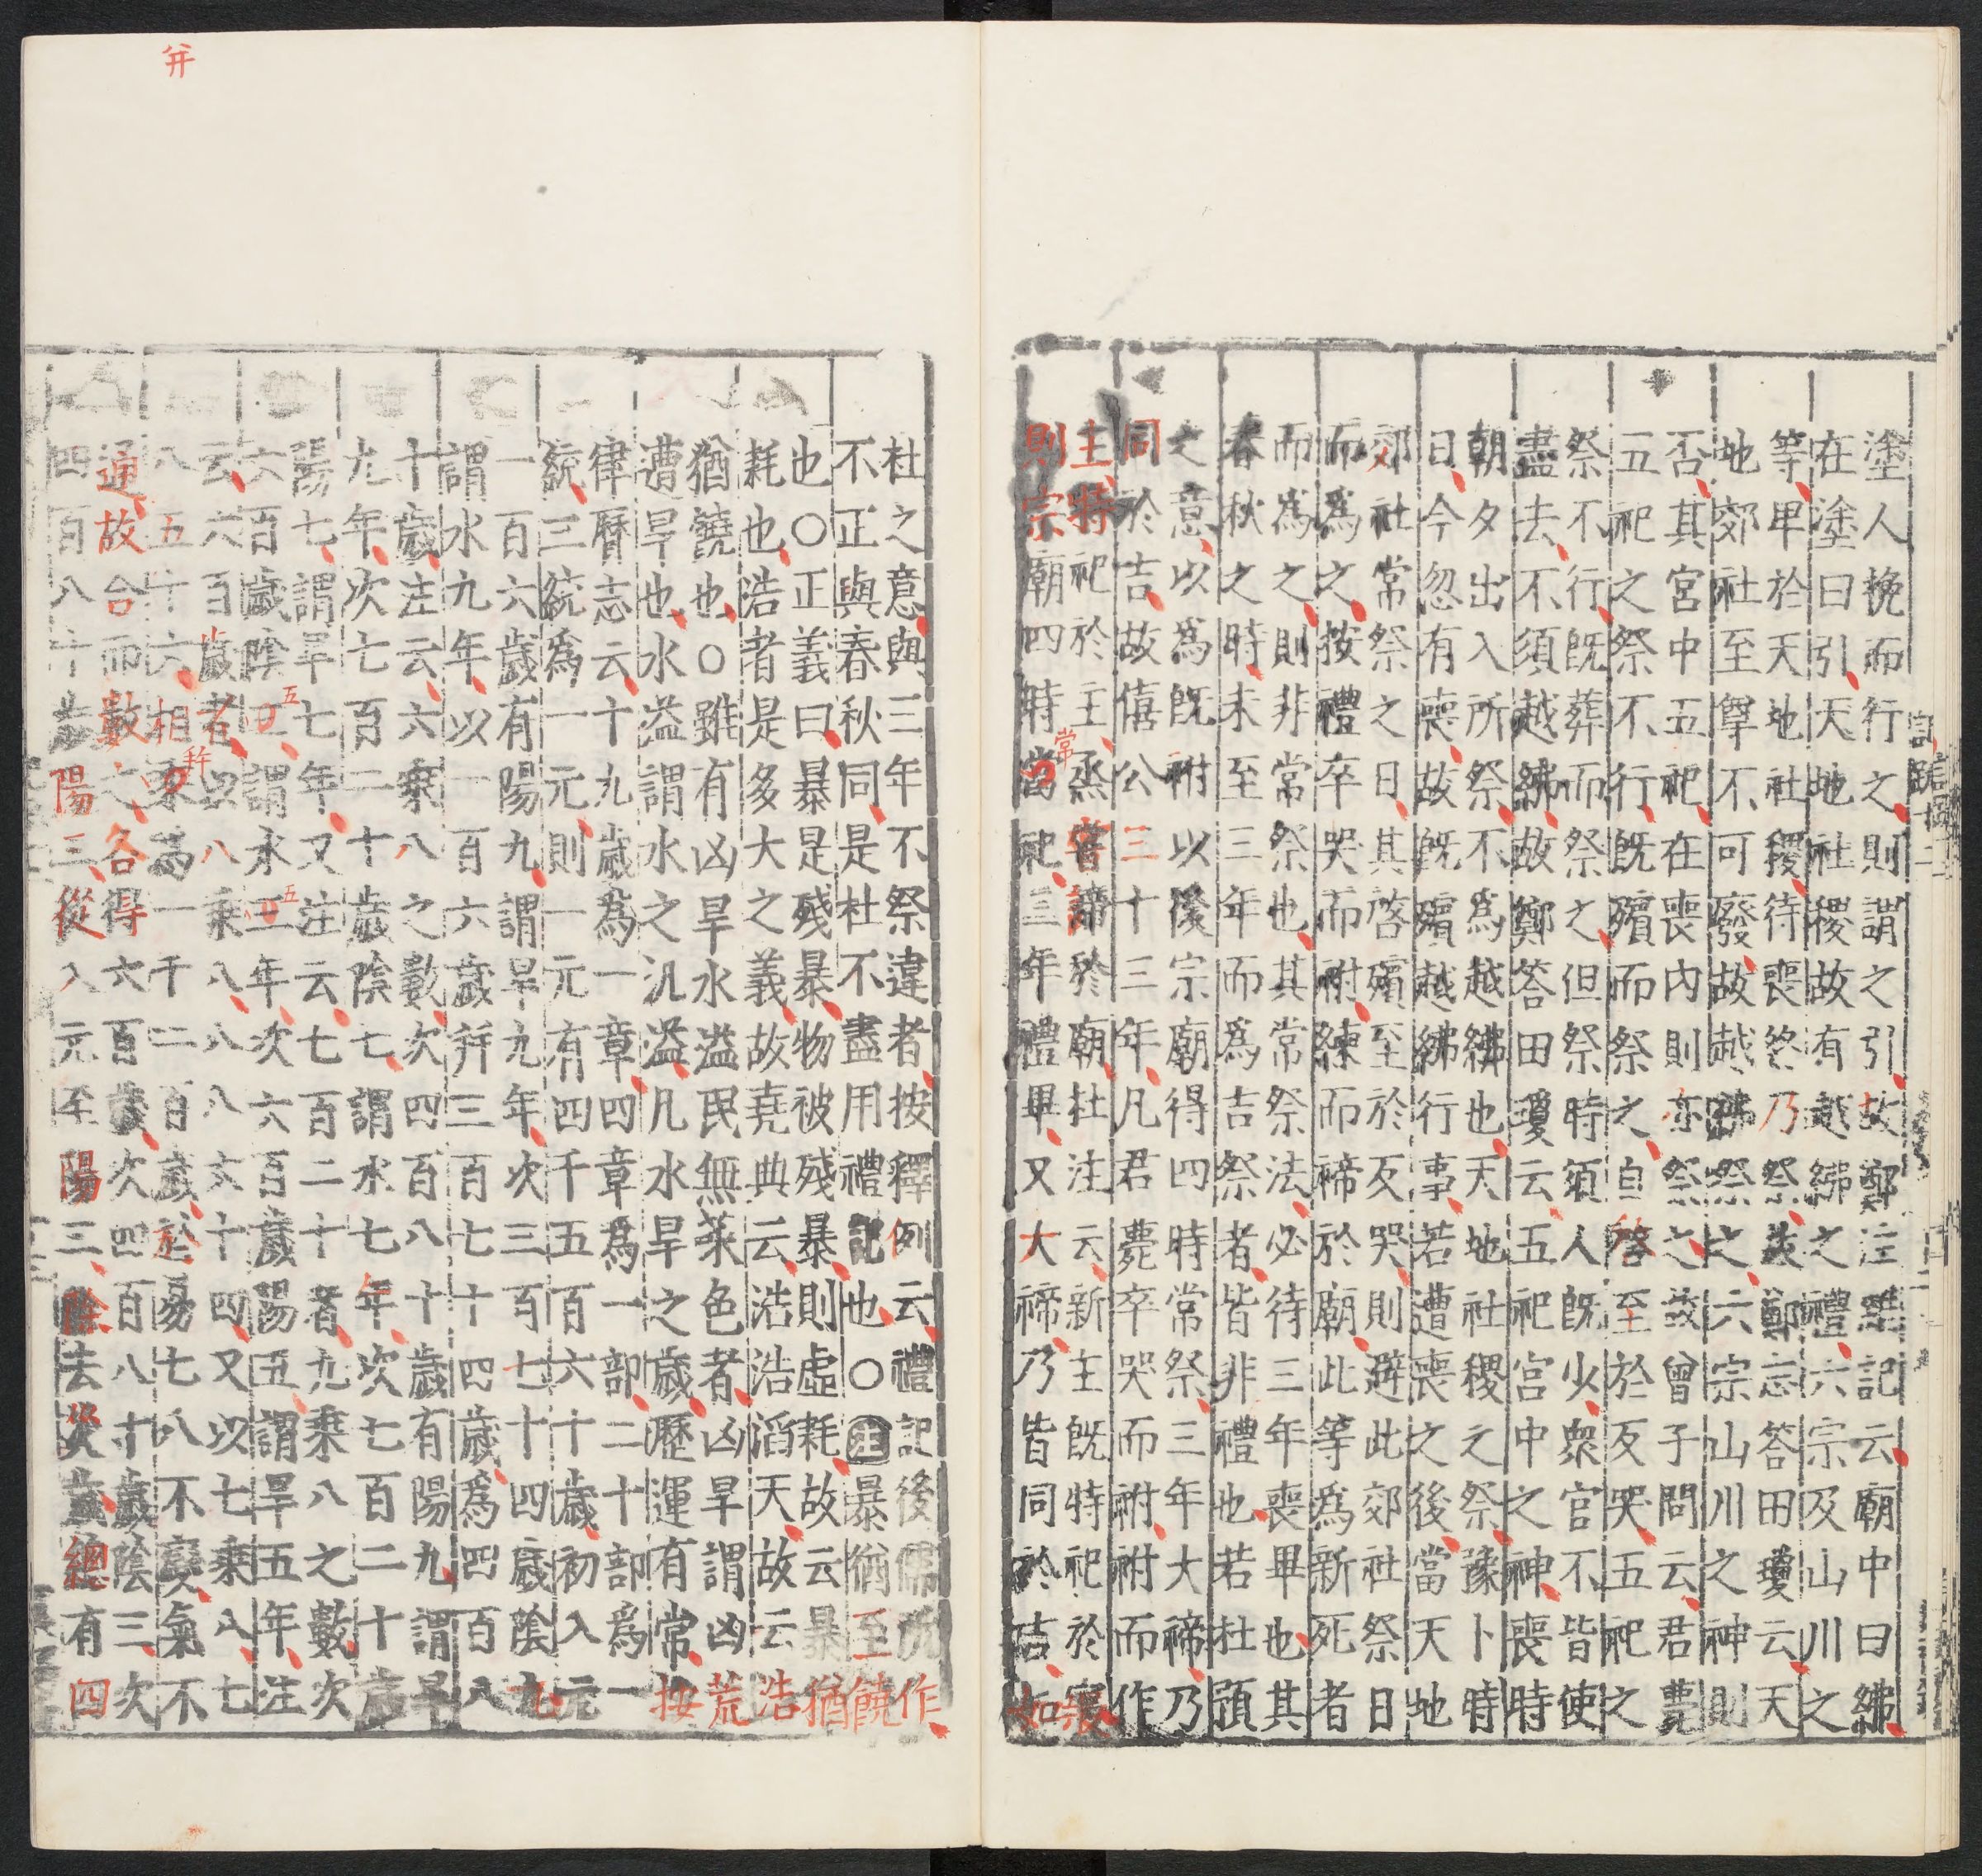 塗人挽而行之則謂之引故鄭注雜記云廟中曰紼
在塗曰引天地社稷故有越紼之禮六宗及山川之
等卑於天地社稷待喪終乃祭故鄭志答田瓊云天
地郊社至尊不可廢故越紼祭之六宗山川之神則
否其宮中五祀在喪內則亦祭之故曾子問云君薨
五祀之祭不行既殯而祭之自啓至於反哭五祀之
祭不行既葬而祭之但祭時須人既少衆官不皆使
盡去不須越紼故鄭答田瓊云五祀宮中之神喪時
朝夕出入所祭不爲越紼也天地社稷之祭豫卜時
日今忽有喪故既殯越紼行事若遭喪之後當天地
郊社常祭之日其啓殯至於反哭則避此郊社祭日
而爲之按禮卒哭而祔練而禘於廟此等爲新死者
而爲之則非常祭也其常祭法必待三年喪畢也其
春秋之時未至三年而爲吉祭者皆非禮也若杜預
之意以爲既祔以後宗廟得四時常祭三年大禘乃
同於吉故僖公三十三年凡君薨卒哭而祔祔而作
主特祀於主烝嘗禘於廟杜注云新主既特祀於寢
常
則宗廟四時當祀三年禮畢又大禘乃皆同於吉如
杜之意與三年不祭違者按釋例云禮記後儒所作
不正與春秋同是杜不盡用禮記也○注暴猶至饒
也○正義曰暴是殘暴物被殘暴則虛耗故云暴猶
耗也浩者是多大之義故堯典云浩浩滔天故云浩
猶饒也○雖有凶旱水溢民無菜色者凶旱謂凶荒
遭旱也水溢謂水之汎溢凡水旱之歲歷運有常按
律曆志云十九歲爲一章四章爲一部二十部爲一
統三統爲一元則一元有四千五百六十歲初入元
一百六歲有陽九謂旱九年次三百七十四歲陰九
謂水九年以一百六歲幷三百七十四歲爲四百八
十歲注云六乘八之數次四百八十歲有陽九謂旱
九年次七百二十歲陰七謂水七年次七百二十歲
陽七謂旱七年又注云七百二十者九乘八之數次
五
五
六百歲陰五謂水五年次六百歲陽五謂旱五年注
云六百歲者以八乘八八八六十四又以七乘八七
并
幷
八五十六相乘爲一千二百歲於易七八不變氣不
通故合而數之各得六百歲次四百八十歲陰三次
四百八十歲陽三從入元至陽三除去災歲總有四